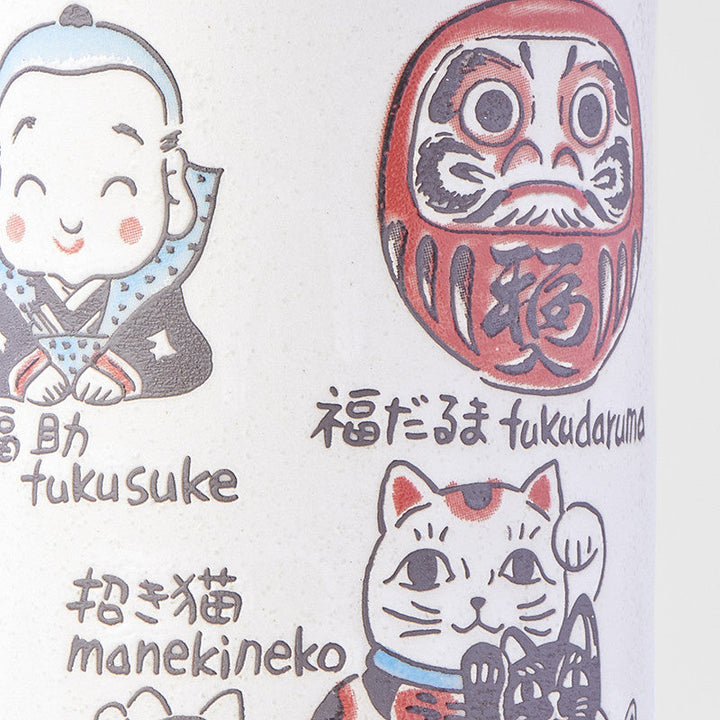 福助
fukusuke
福だるま fukudaruma
福入
招き猫
manekineko